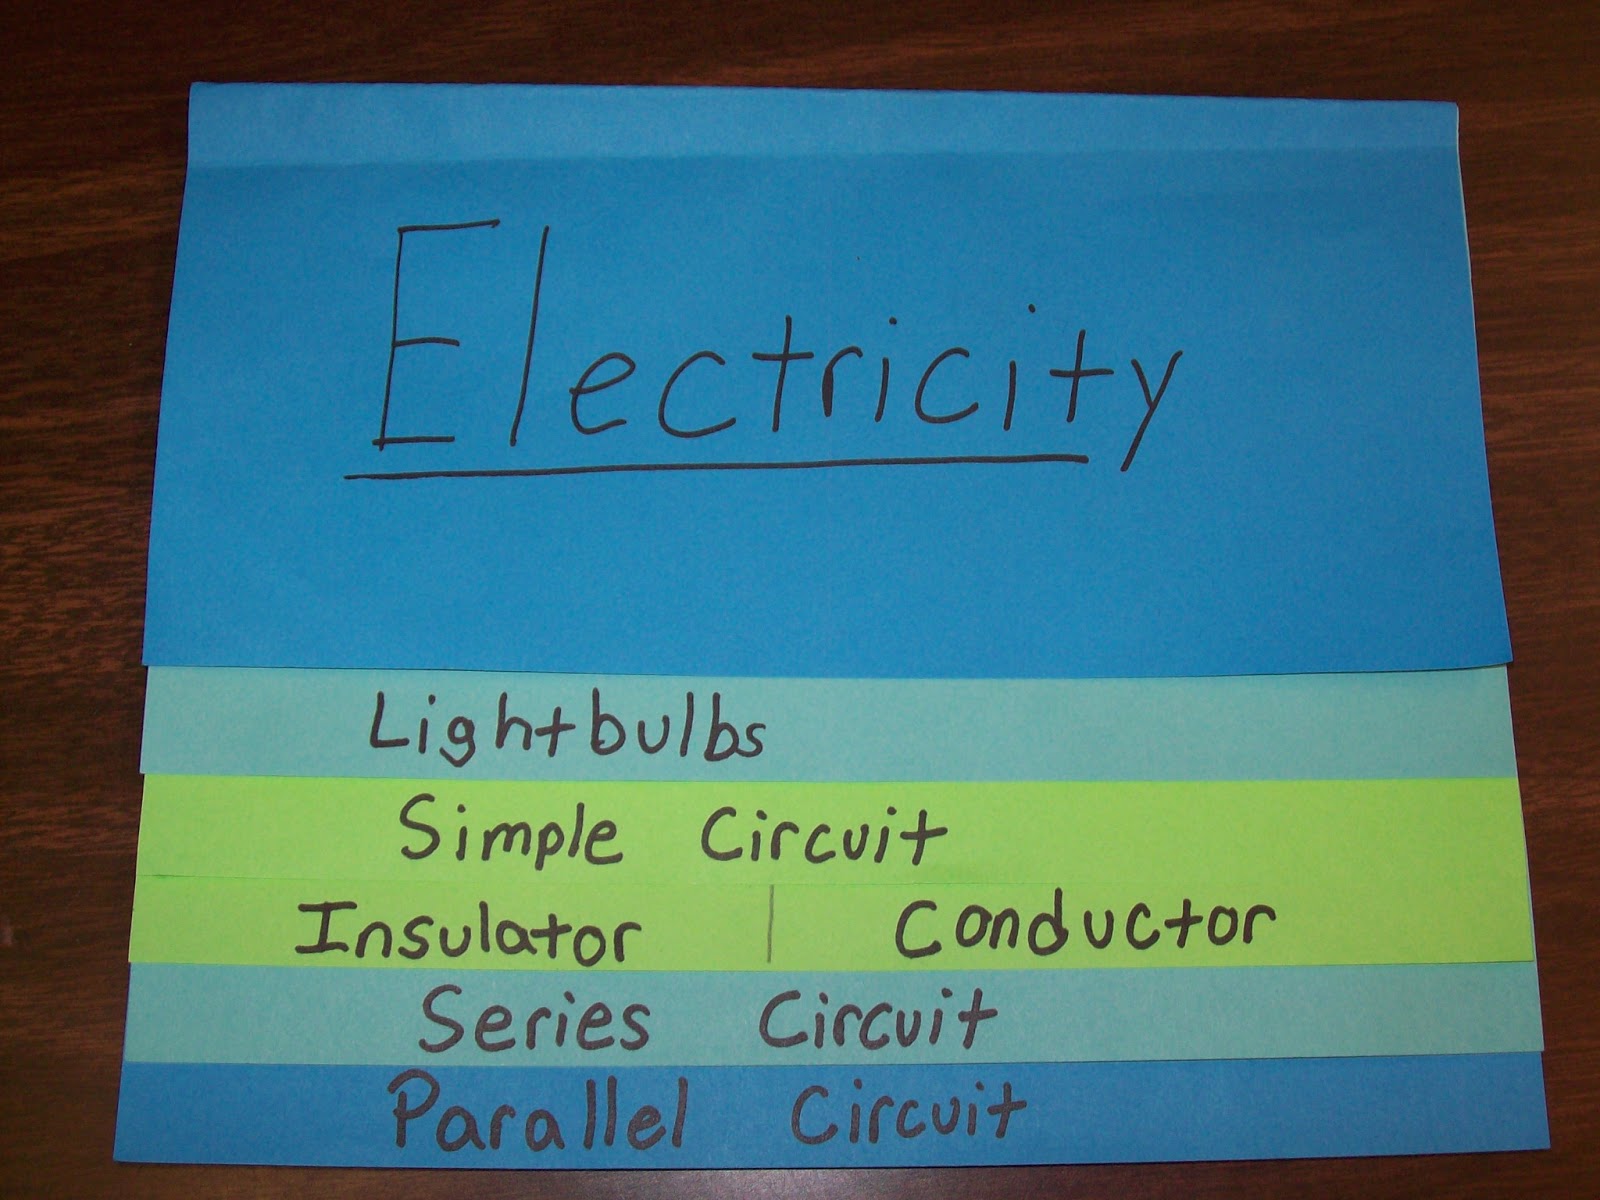 Electricity
Lightbulbs
Simple Circuit
Insulator | Conductor
Series Circuit
Parallel Circuit